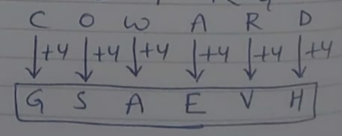 C O W A R D
↓+4 ↓+4 ↓+4 ↓+4 ↓+4 ↓+4
G S A E V H